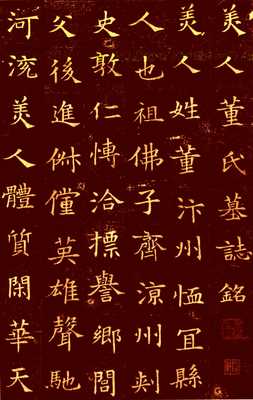 美人董氏墓誌銘
美人姓董汴州恤冝縣
人也祖佛子齊涼州刾
史敦仁愽洽摽譽鄉閭
父後進俶儻英雄聲馳
河沇美人體質閑華天